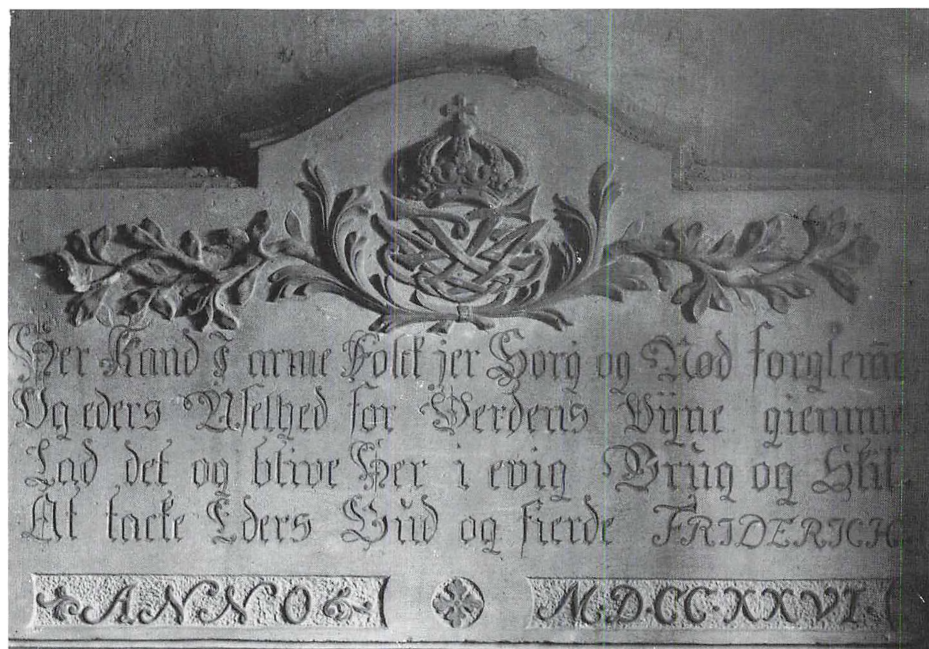 Her Kand I arme Folck jer Sorg og Nød forglem̄e,
Og eders Uselhed for Verdens Øÿne giemme,
Lad det og blive Her i evig Brug og Skik,
At tacke Eders Gud og fierde FRIDERICH.
ANNO M.D.CC.XXVI.